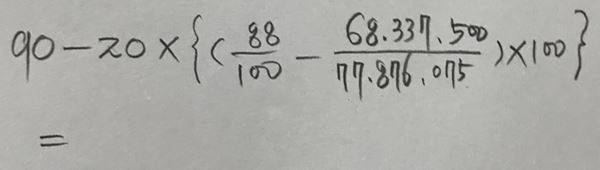 90-20×{(88/100 - 68.337.500/77.876.075)×100}
=